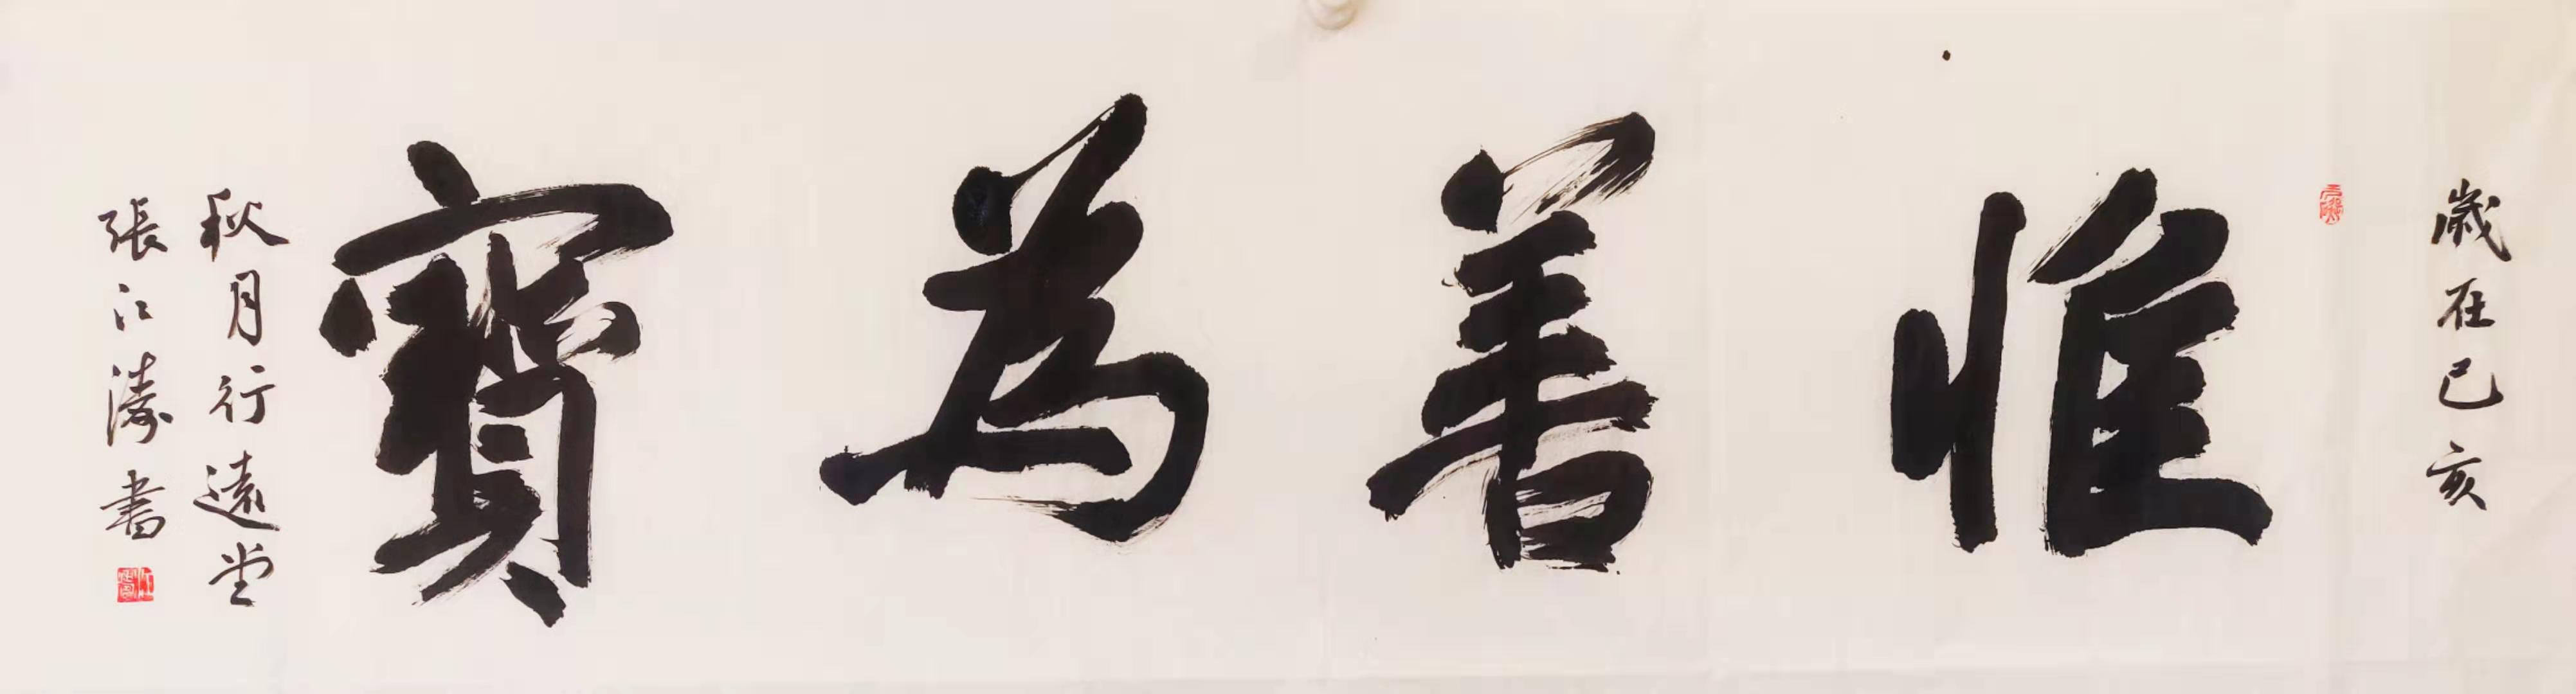 歲在己亥
惟善為寶
秋月行遠堂
張江濤書